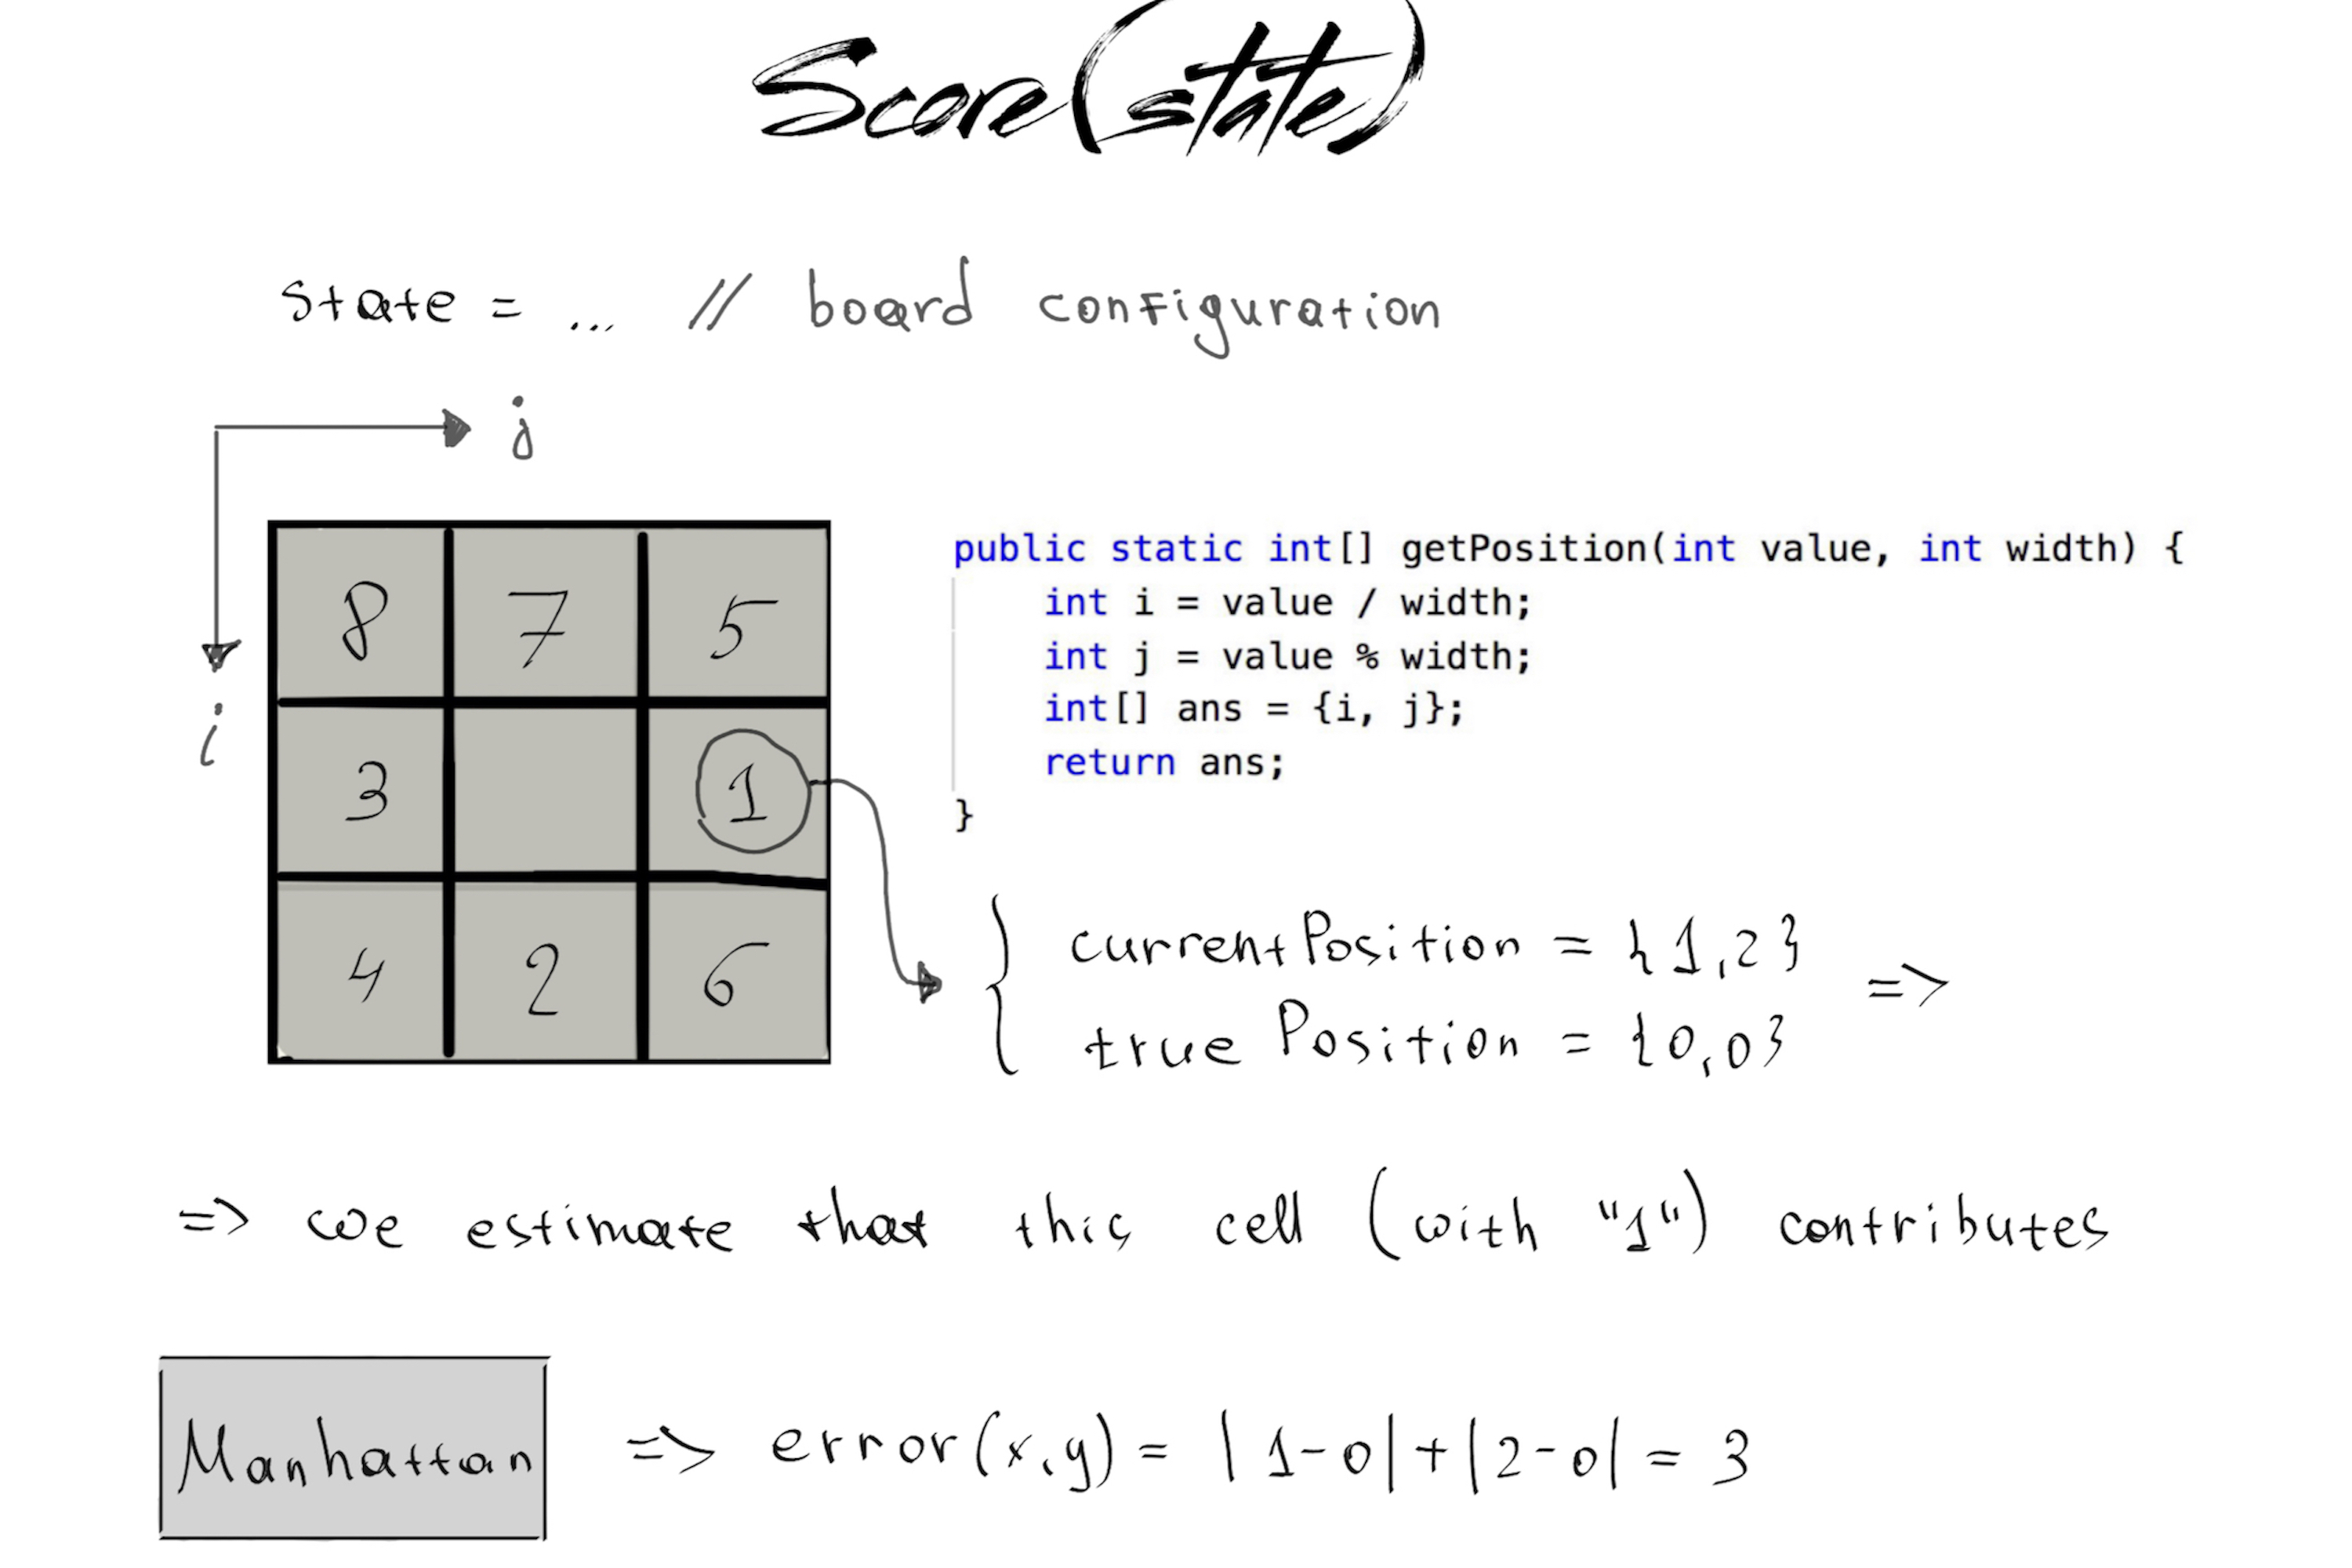 Score(state)
state = ... // board configuration
j
i
8 7 5
3 1
4 2 6
public static int[] getPosition(int value, int width) {
int i = value / width;
int j = value % width;
int[] ans = {i, j};
return ans;
}
currentPosition = {1,2}
true Position = {0,0}
=>
=> we estimate that this cell (with "1") contributes
Manhattan => error(x,y) = |1-0|+|2-0| = 3